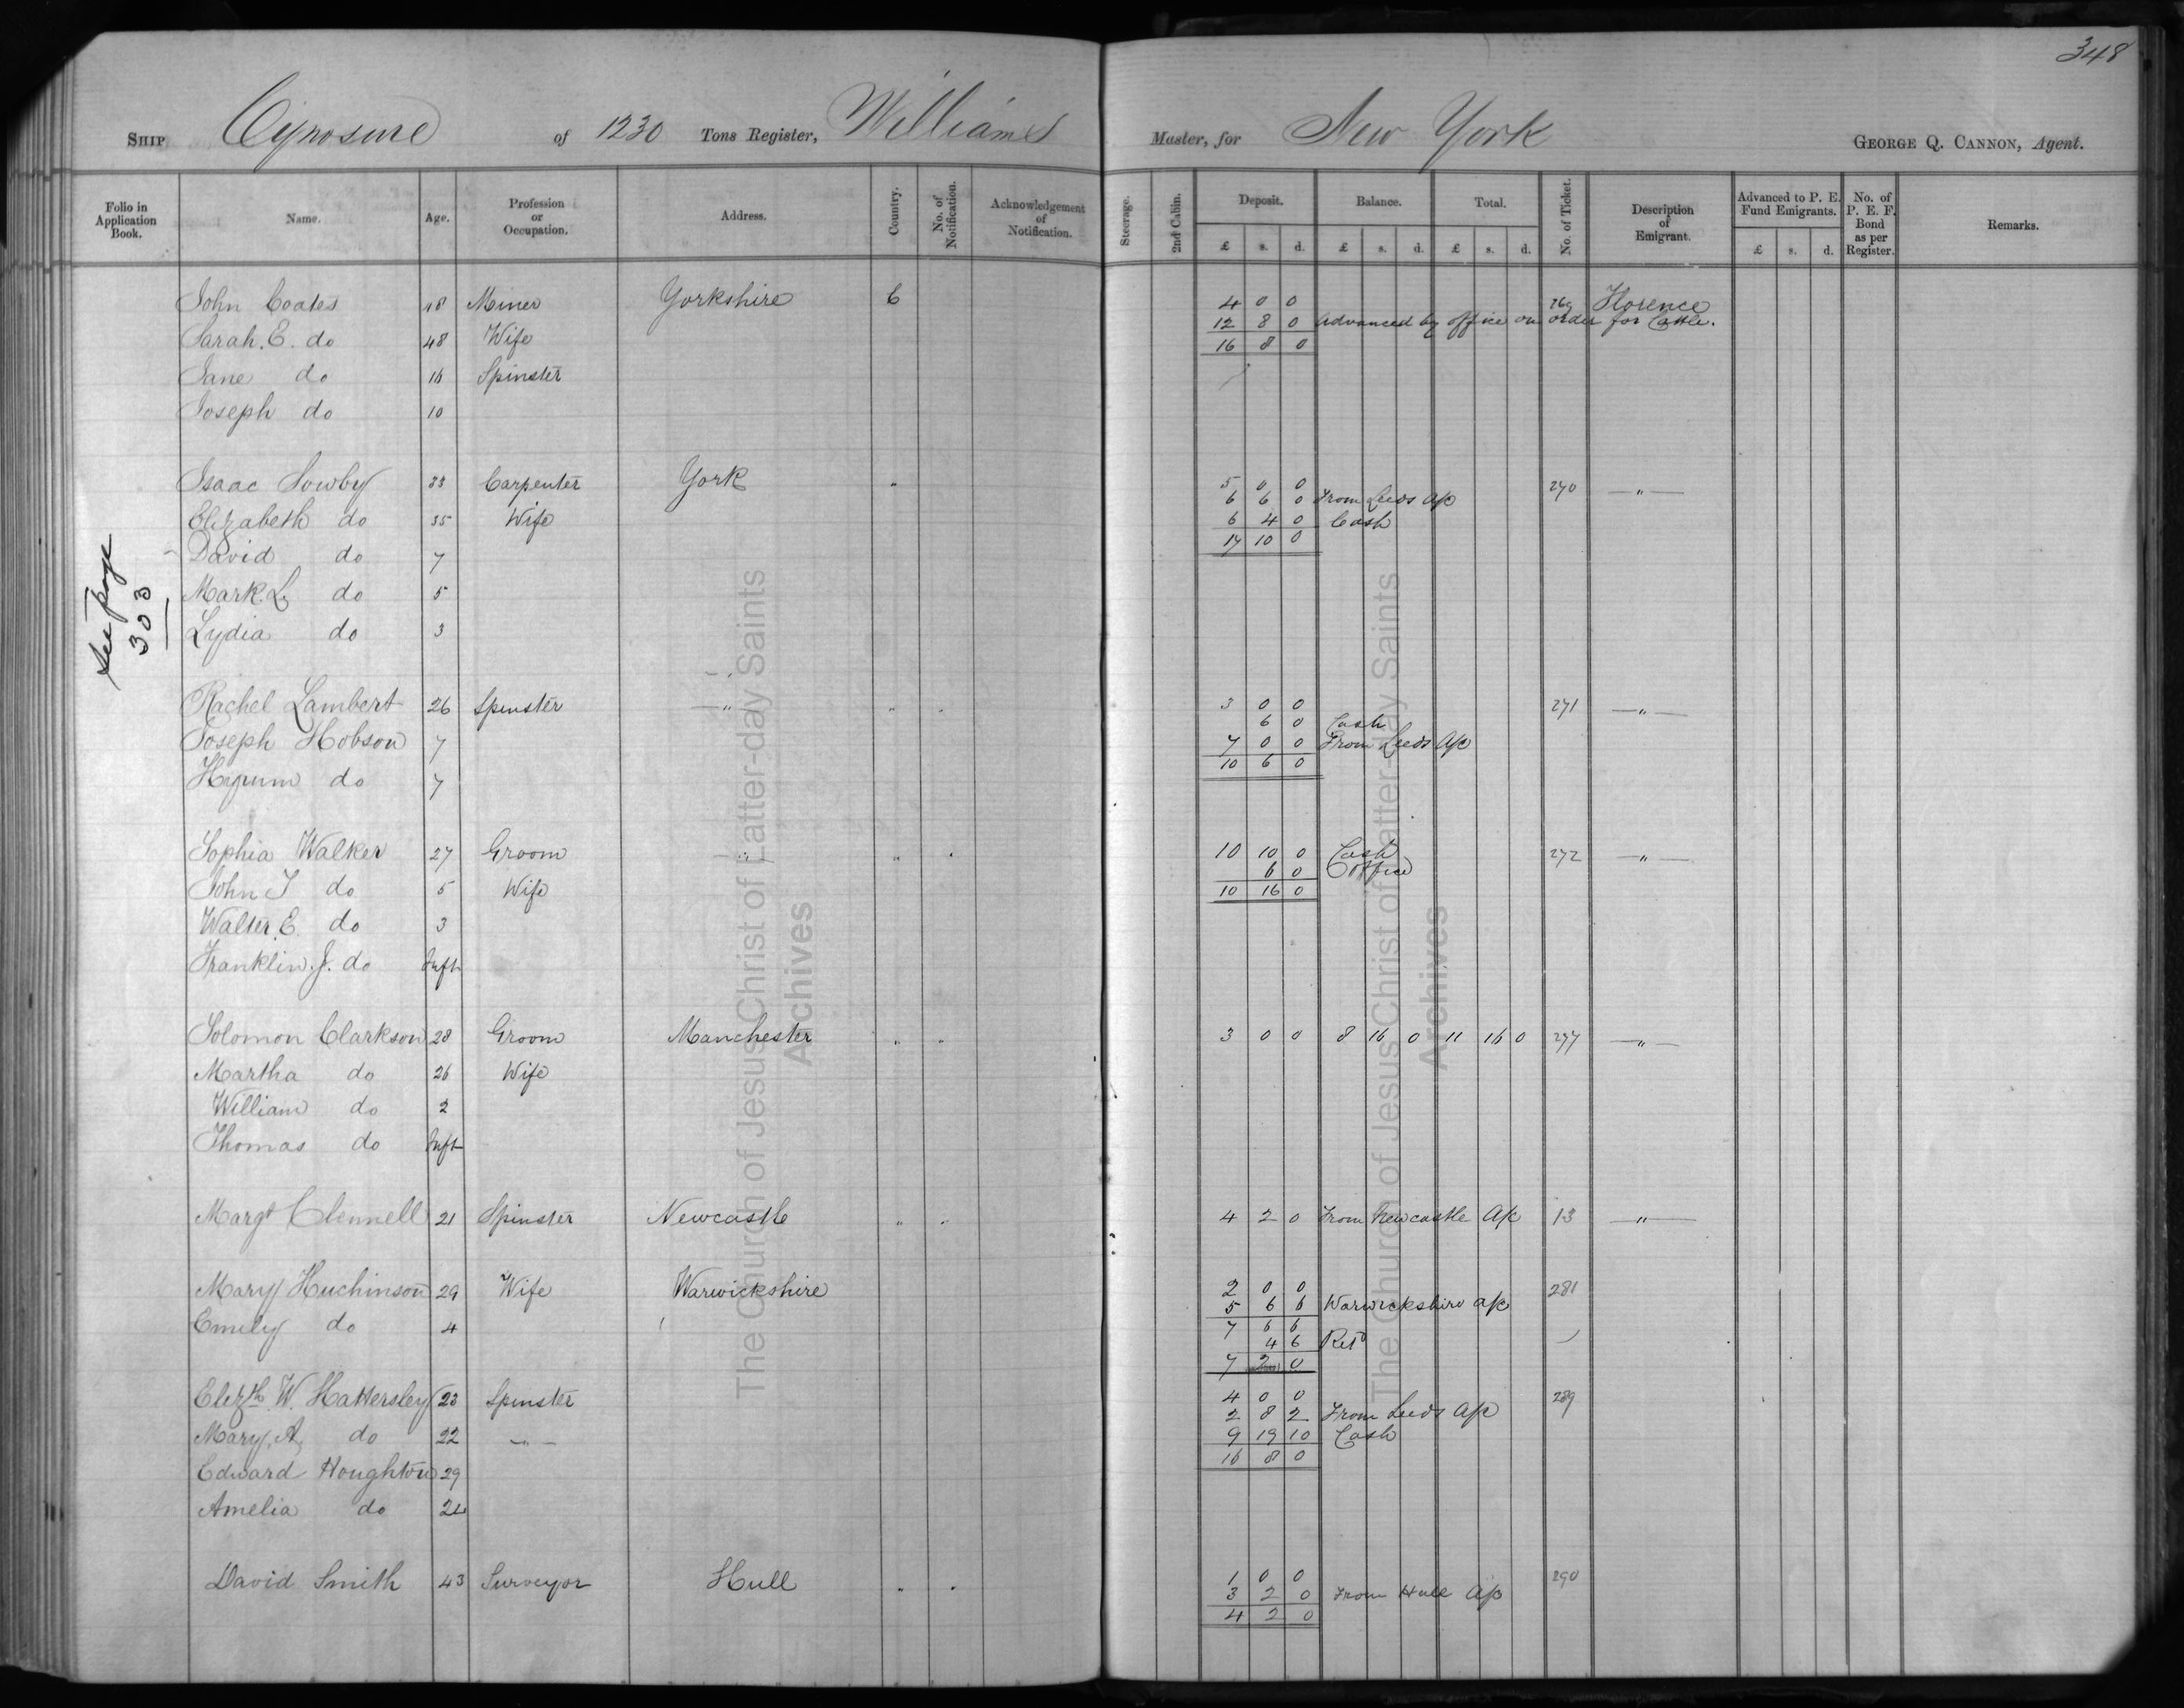 348
SHIP Cynosure of 1230 Tons Register, Williams Master, for New York GEORGE Q. CANNON, Agent.
Folio in Application Book. Name. Age. Profession or Occupation. Address. Country. No. of Notification. Acknowledgement of Notification. Steerage. 2nd Cabin. Deposit. £ s. d. Balance. £ s. d. Total. £ s. d. No. of Ticket. Description of Emigrant. Advanced to P. E. Fund Emigrants. £ s. d. No. of P. E. F. Bond as per Register. Remarks.
John Coates 48 Miner Yorkshire 6 4 0 0 269 Florence
12 8 0 Advanced by office on order for Cattle.
Sarah. E. do 48 Wife 16 8 0
Jane do 16 Spinster
Joseph do 10
Isaac Sowby 33 Carpenter York " 5 0 0 270 — " —
6 6 0 From Leeds A/c
Elizabeth do 35 Wife 6 4 0 Cash
17 10 0
David do 7
Mark. L. do 5
Lydia do 3
See page 303
Rachel Lambert 26 Spinster — " — " " 3 0 0 271 — " —
6 0 Cash
Joseph Hobson 7 7 0 0 From Leeds A/c
10 6 0
Hyrum do 7
Sophia Walker 27 Groom " " " 10 10 0 Cash 272 — " —
6 0 Office
John T do 5 Wife 10 16 0
Walter. E. do 3
Franklin. J. do Inft
Solomon Clarkson 28 Groom Manchester " " 3 0 0 8 16 0 11 16 0 277 — " —
Martha do 26 Wife
William do 2
Thomas do Inft
Margt Clennell 21 Spinster Newcastle " " 4 2 0 From Newcastle A/c 13 — " —
Mary Huchinson 29 Wife Warwickshire 2 0 0 281
5 6 6 Warwickshire a/c
Emily do 4 7 6 6
4 6 Retd
7 2 0
Elizth. W. Hattersley 23 Spinster 4 0 0 289
2 8 2 From Leeds A/c
Mary. A. do 22 — " — 9 19 10 Cash
16 8 0
Edward Houghton 29
Amelia do 24
David Smith 43 Surveyor Hull " " 1 0 0 290
3 2 0 From Hull A/c
4 2 0
The Church of Jesus Christ of Latter-day Saints
Archives
The Church of Jesus Christ of Latter-day Saints
Archives